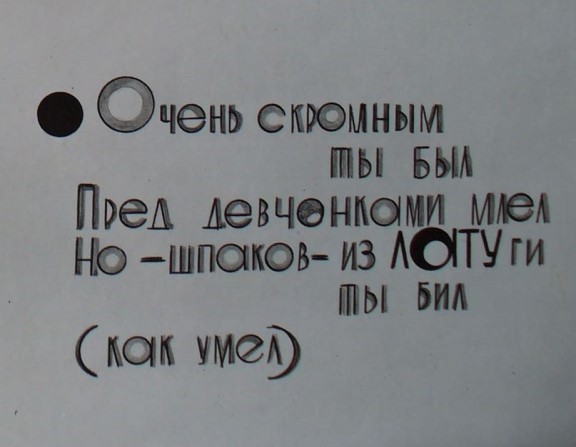 Очень скромным
ты был
Пред девчонками млел
Но – шпаков – из ЛАТУги
ты бил
(как умел)